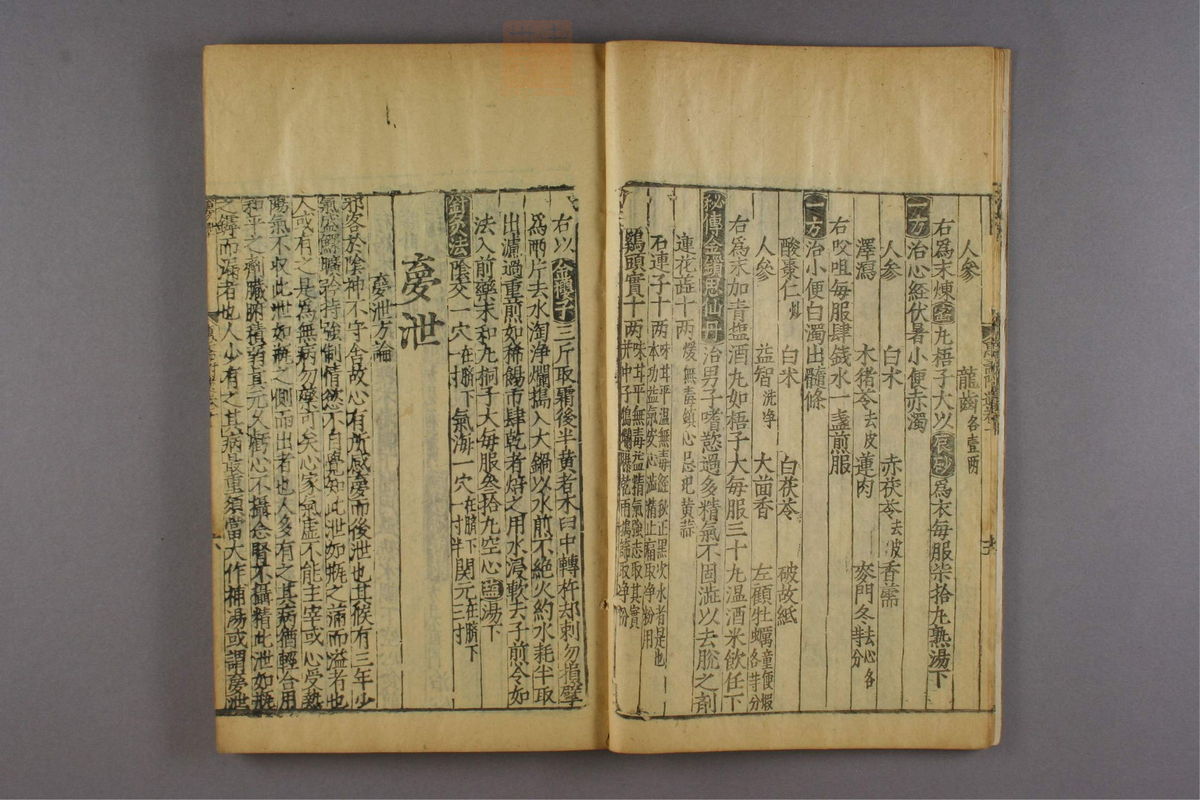 人參　龍齒各壹兩
右爲末煉蜜丸梧子大以辰砂爲衣每服柒拾丸熟湯下
一方治心經伏暑小便赤濁
人參　白朮　赤茯苓去皮　香薷
澤瀉　木猪苓去皮　蓮肉　麥門冬去心各等分
右㕮咀每服肆錢水一盞煎服
一方治小便白濁出髓條
酸棗仁炒　白朮　白茯苓　破故紙
人參　益智洗淨　大茴香　左顧牡蠣童便煆各等分
右爲末加青塩酒丸如梧子大每服三十丸温酒米飲任下
秘傳金鎖思仙丹治男子嗜慾過多精氣不固澁以去脫之剤
蓮花蕊十两煖無毒鎮心忌地黄蒜
石連子十两味甘平温無毒經秋正黑沉水者是也本功益氣安心澁精止痢取淨粉用
鷄頭實十两味甘平無毒益精氣強志取其實并中子搗爛曝乾再搗篩取淨粉
右以金櫻子三斤取霜後半黄者木臼中轉杵却刺勿損擘
爲兩片去水淘淨爛搗入大鍋以水煎不絶火約水耗半取
出濾過重煎如稀餳市肆乾者焙之用水浸軟去子煎令如
法入前藥末和丸桐子大每服叁拾丸空心塩湯下
針灸法陰交一穴在臍下一寸　氣海一穴在臍下一寸半　関元三寸在臍下
夢泄
夢泄方論
邪客於陰神不守舍故心有所感夢而後泄也其候有三年少
氣盛鰥曠矜持強制情慾不自覺知此泄如瓶之滿而溢者也
人或有之是爲無病勿藥可矣心家氣虚不能主宰或心受熱
陽氣不收此泄如瓶之側而出者也人多有之其病猶輕合用
和平之劑臟腑積弱真元久虧心不攝念腎不攝精此泄如瓶
之罅而漏者也人少有之其病最重須當大作補湯或謂夢泄